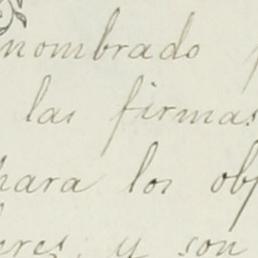 nombrado
las firmas
para los obj
eres, y son